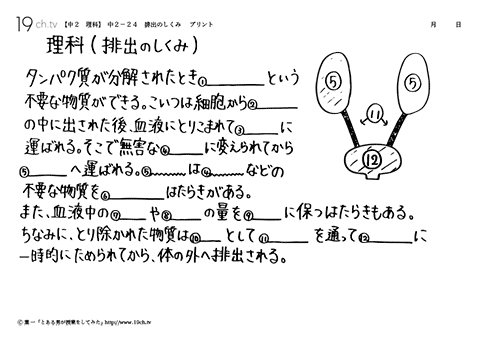 19ch.tv 【中2 理科】 中2-24 排出のしくみ プリント 月 日
理科(排出のしくみ)
タンパク質が分解されたとき①________という
不要な物質ができる。こいつは細胞から②________
の中に出された後、血液にとりこまれて③________に
運ばれる。そこで無害な④________に変えられてから
⑤________へ運ばれる。⑤________は④________などの
不要な物質を⑥________はたらきがある。
また、血液中の⑦________や⑧________の量を⑨________に保つはたらきもある。
ちなみに、とり除かれた物質は⑩________として⑪________を通って⑫________に
一時的にためられてから、体の外へ排出される。
⑤ ⑤
⑪
⑫
© 葉一「とある男が授業をしてみた」http://www.19ch.tv